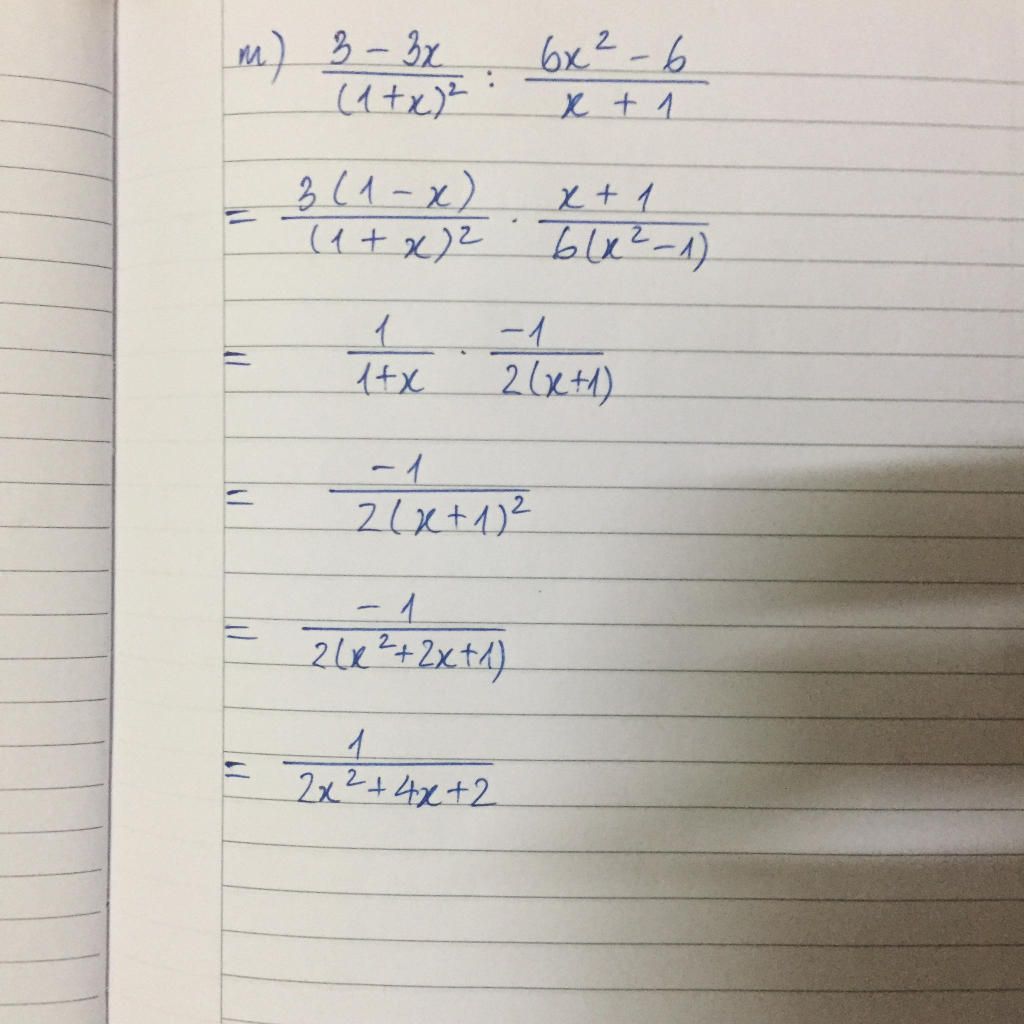 m) \frac{3 - 3x}{(1+x)^2} : \frac{6x^2 - 6}{x + 1}
= \frac{3(1 - x)}{(1 + x)^2} \cdot \frac{x + 1}{6(x^2 - 1)}
= \frac{1}{1+x} \cdot \frac{-1}{2(x+1)}
= \frac{-1}{2(x+1)^2}
= \frac{-1}{2(x^2+2x+1)}
= \frac{1}{2x^2+4x+2}